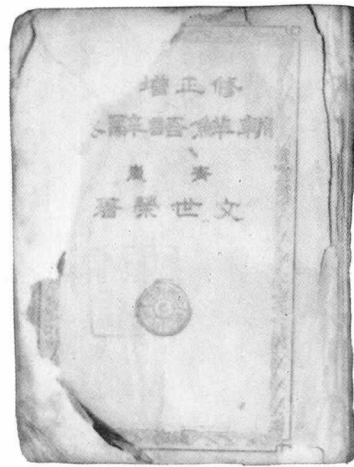 修正增
朝鮮語辭
靑嵐
文世榮著